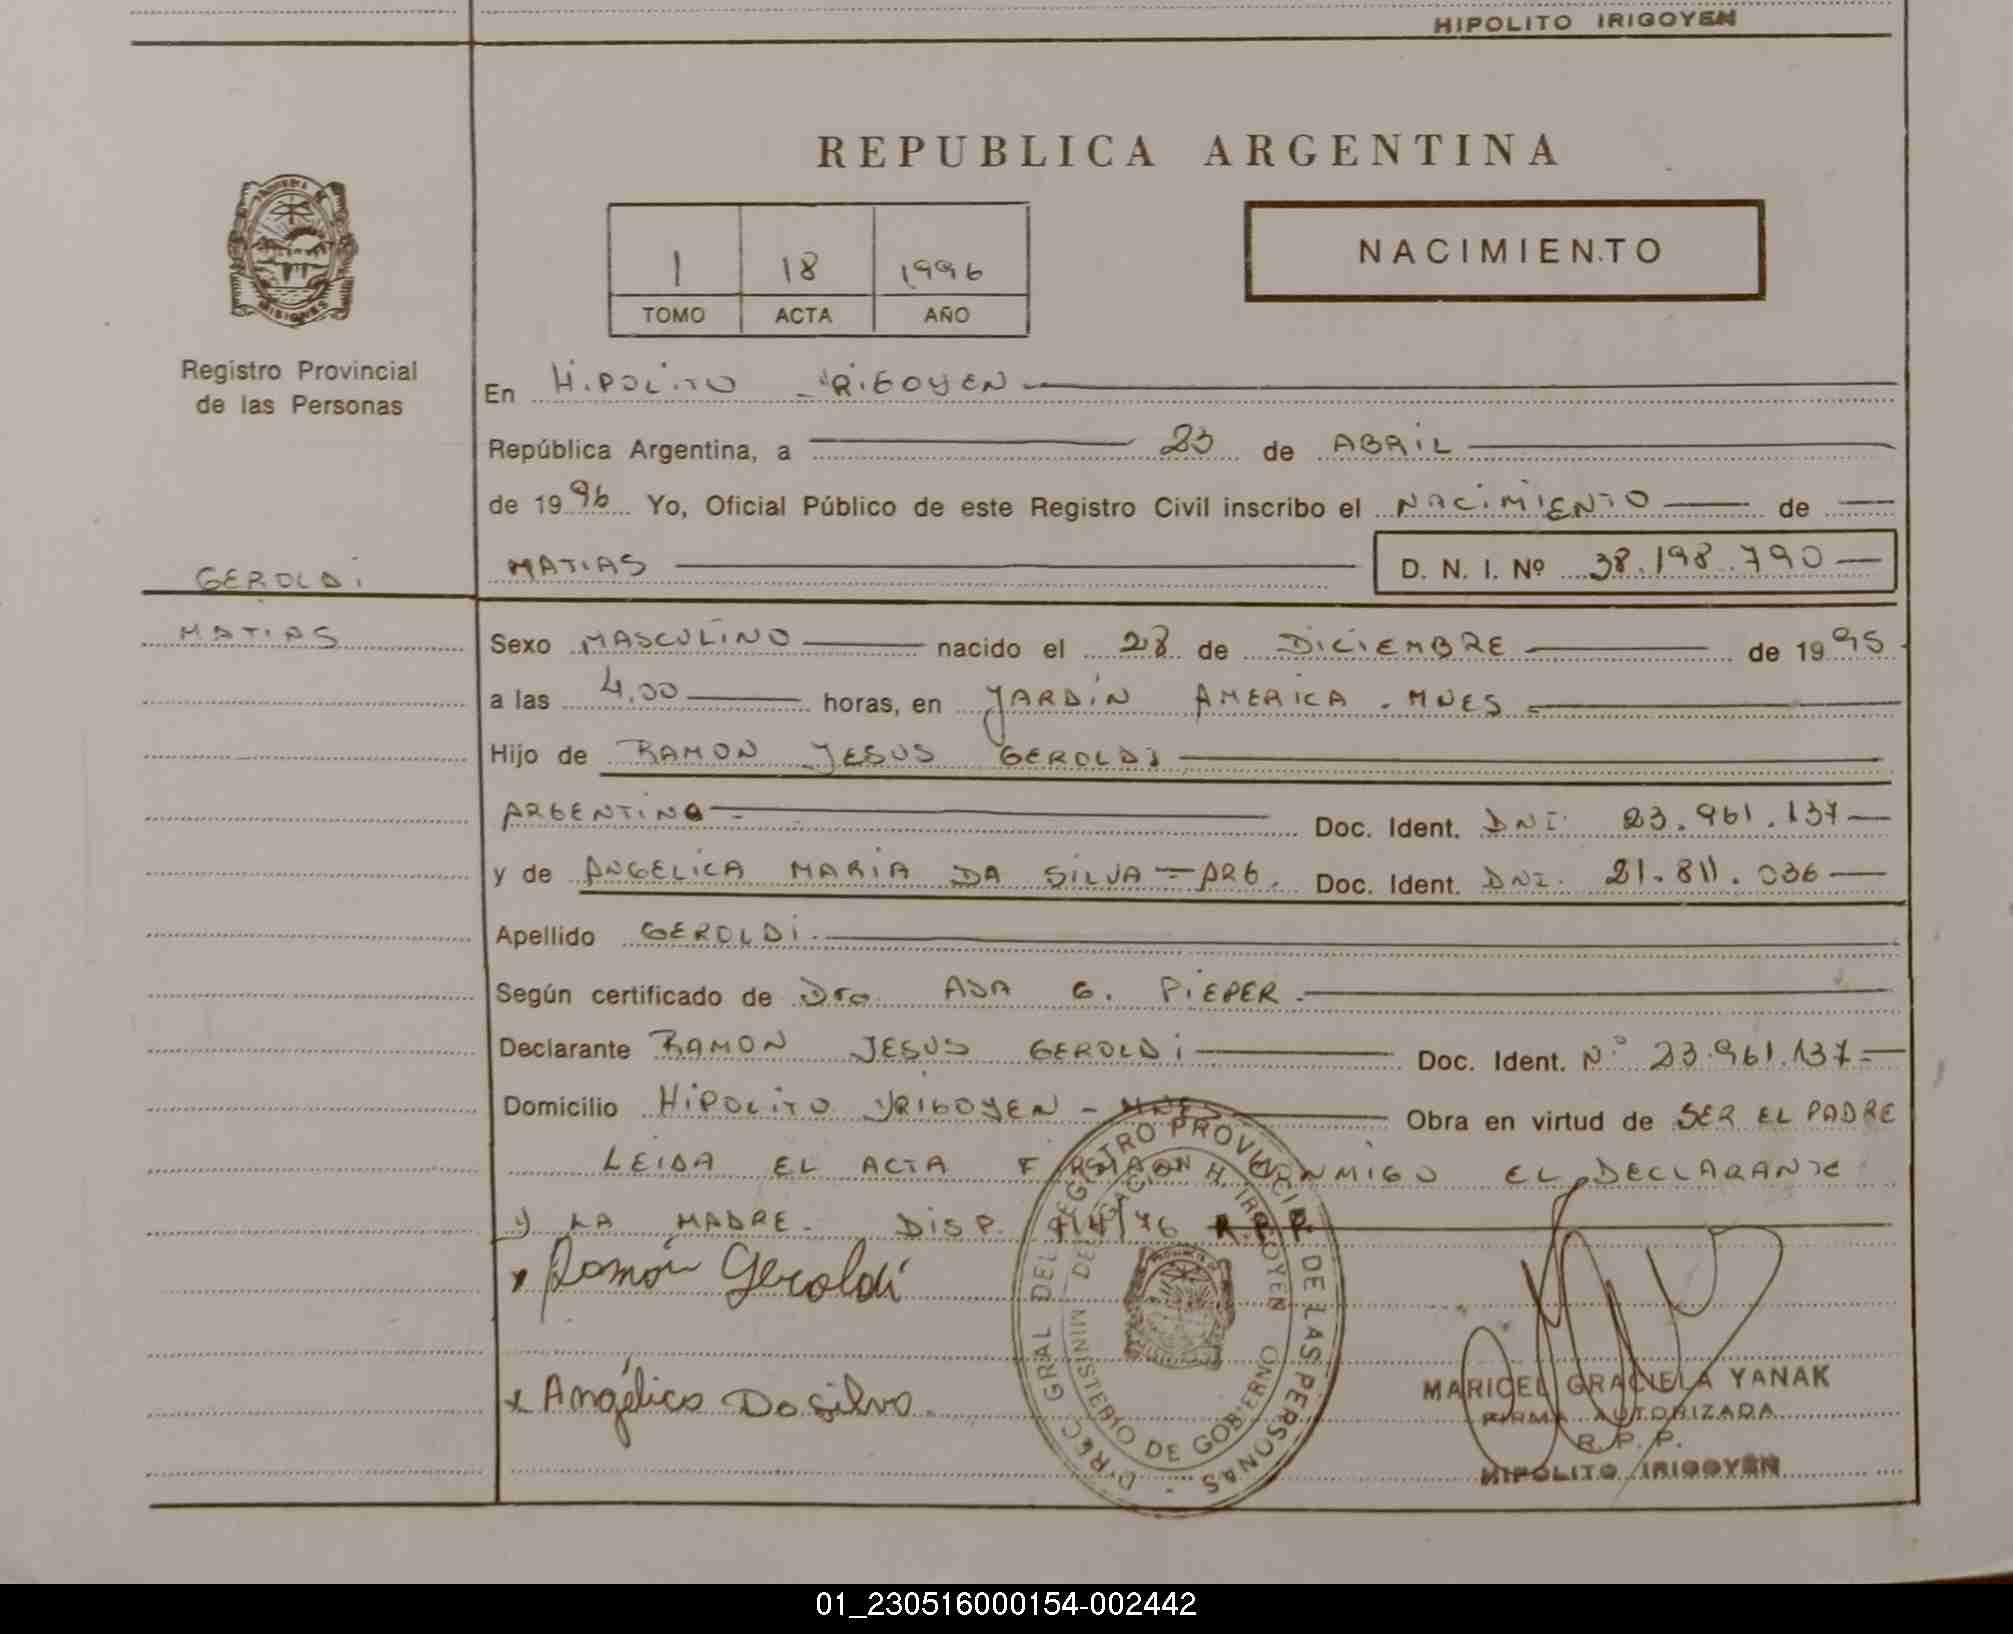 HIPOLITO IRIGOYEN
REPUBLICA ARGENTINA
1 18 1996
TOMO ACTA AÑO
NACIMIENTO
MISIONES
Registro Provincial
de las Personas
En HIPOLITO YRIGOYEN
República Argentina, a 23 de ABRIL
de 1996 Yo, Oficial Público de este Registro Civil inscribo el NACIMIENTO de
MATIAS D. N. I. Nº 38.198.790
GEROLDI
MATIAS
Sexo MASCULINO nacido el 28 de DICIEMBRE de 1995
a las 4.00 horas, en JARDIN AMERICA - MNES
Hijo de RAMON JESUS GEROLDI
ARGENTINO Doc. Ident. DNI: 23.961.137
y de ANGELICA MARIA DA SILVA - ARG. Doc. Ident. DNI. 21.811.036
Apellido GEROLDI
Según certificado de Dra. ADA G. PIEPER
Declarante RAMON JESUS GEROLDI Doc. Ident. Nº 23.961.137
Domicilio HIPOLITO YRIGOYEN - MNES Obra en virtud de SER EL PADRE
LEIDA EL ACTA FIRMAN CONMIGO EL DECLARANTE
Y LA MADRE. DISP. R.P.P.
x Ramón Geroldi
x Angélica Da Silva
DIREC. GRAL DEL REGISTRO PROVINCIAL DE LAS PERSONAS
MINISTERIO DE GOBIERNO
DELEGACION H. IRIGOYEN
MARICEL GRACIELA YANAK
FIRMA AUTORIZADA
R. P. P.
HIPOLITO IRIGOYEN
01_230516000154-002442